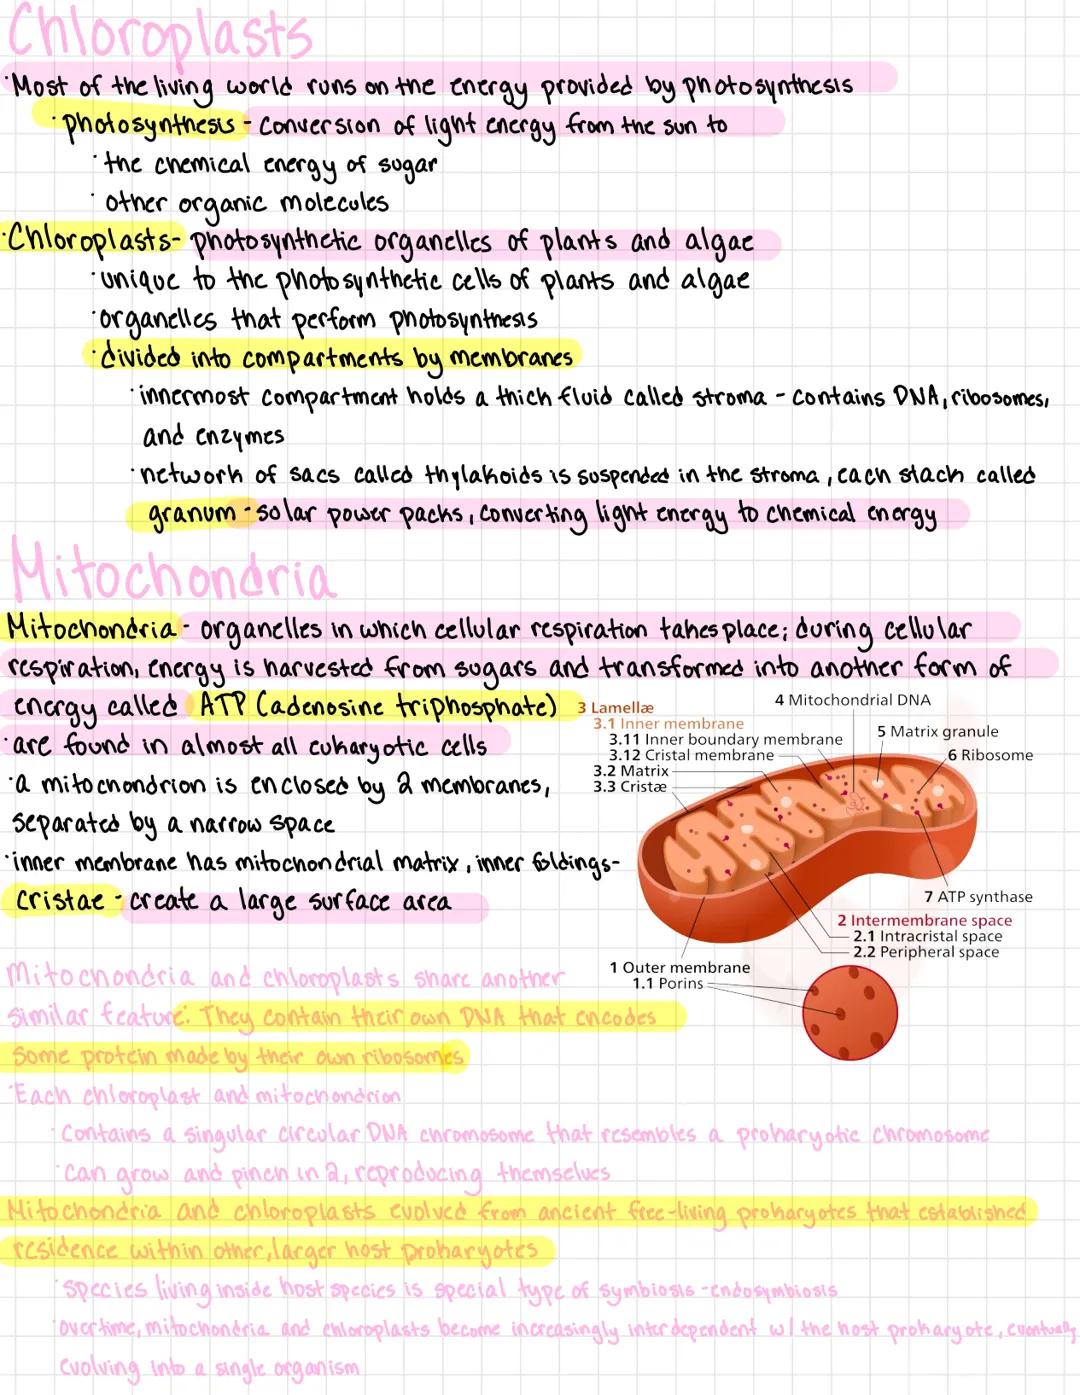 Chloroplasts
·Most of the living world runs on the energy provided by photosynthesis
·photosynthesis - conversion of light energy from the sun to
·the chemical energy of sugar
·other organic molecules
·Chloroplasts- photosynthetic organelles of plants and algae
·unique to the photosynthetic cells of plants and algae
·organelles that perform photosynthesis
·divided into compartments by membranes
·innermost compartment holds a thick fluid called stroma - contains DNA, ribosomes,
and enzymes
·network of sacs called thylakoids is suspended in the stroma, each stack called
granum - solar power packs, converting light energy to chemical energy
Mitochondria
Mitochondria - organelles in which cellular respiration takes place; during cellular
respiration, energy is harvested from sugars and transformed into another form of
energy called ATP (adenosine triphosphate)
·are found in almost all eukaryotic cells
·a mitochondrion is enclosed by 2 membranes,
separated by a narrow space
·inner membrane has mitochondrial matrix, inner foldings-
cristae - create a large surface area
3 Lamellæ
3.1 Inner membrane
3.11 Inner boundary membrane
3.12 Cristal membrane
3.2 Matrix
3.3 Cristæ
4 Mitochondrial DNA
5 Matrix granule
6 Ribosome
7 ATP synthase
2 Intermembrane space
2.1 Intracristal space
2.2 Peripheral space
1 Outer membrane
1.1 Porins
Mitochondria and chloroplasts share another
similar feature: They contain their own DNA that encodes
some protein made by their own ribosomes
·Each chloroplast and mitochondrion
·Contains a singular circular DNA chromosome that resembles a prokaryotic chromosome
·can grow and pinch in 2, reproducing themselves
Mitochondria and chloroplasts evolved from ancient free-living prokaryotes that established
residence within other, larger host prokaryotes
·species living inside host species is special type of symbiosis - endosymbiosis
·overtime, mitochondria and chloroplasts become increasingly interdependent w/ the host prokaryote, eventually
evolving into a single organism